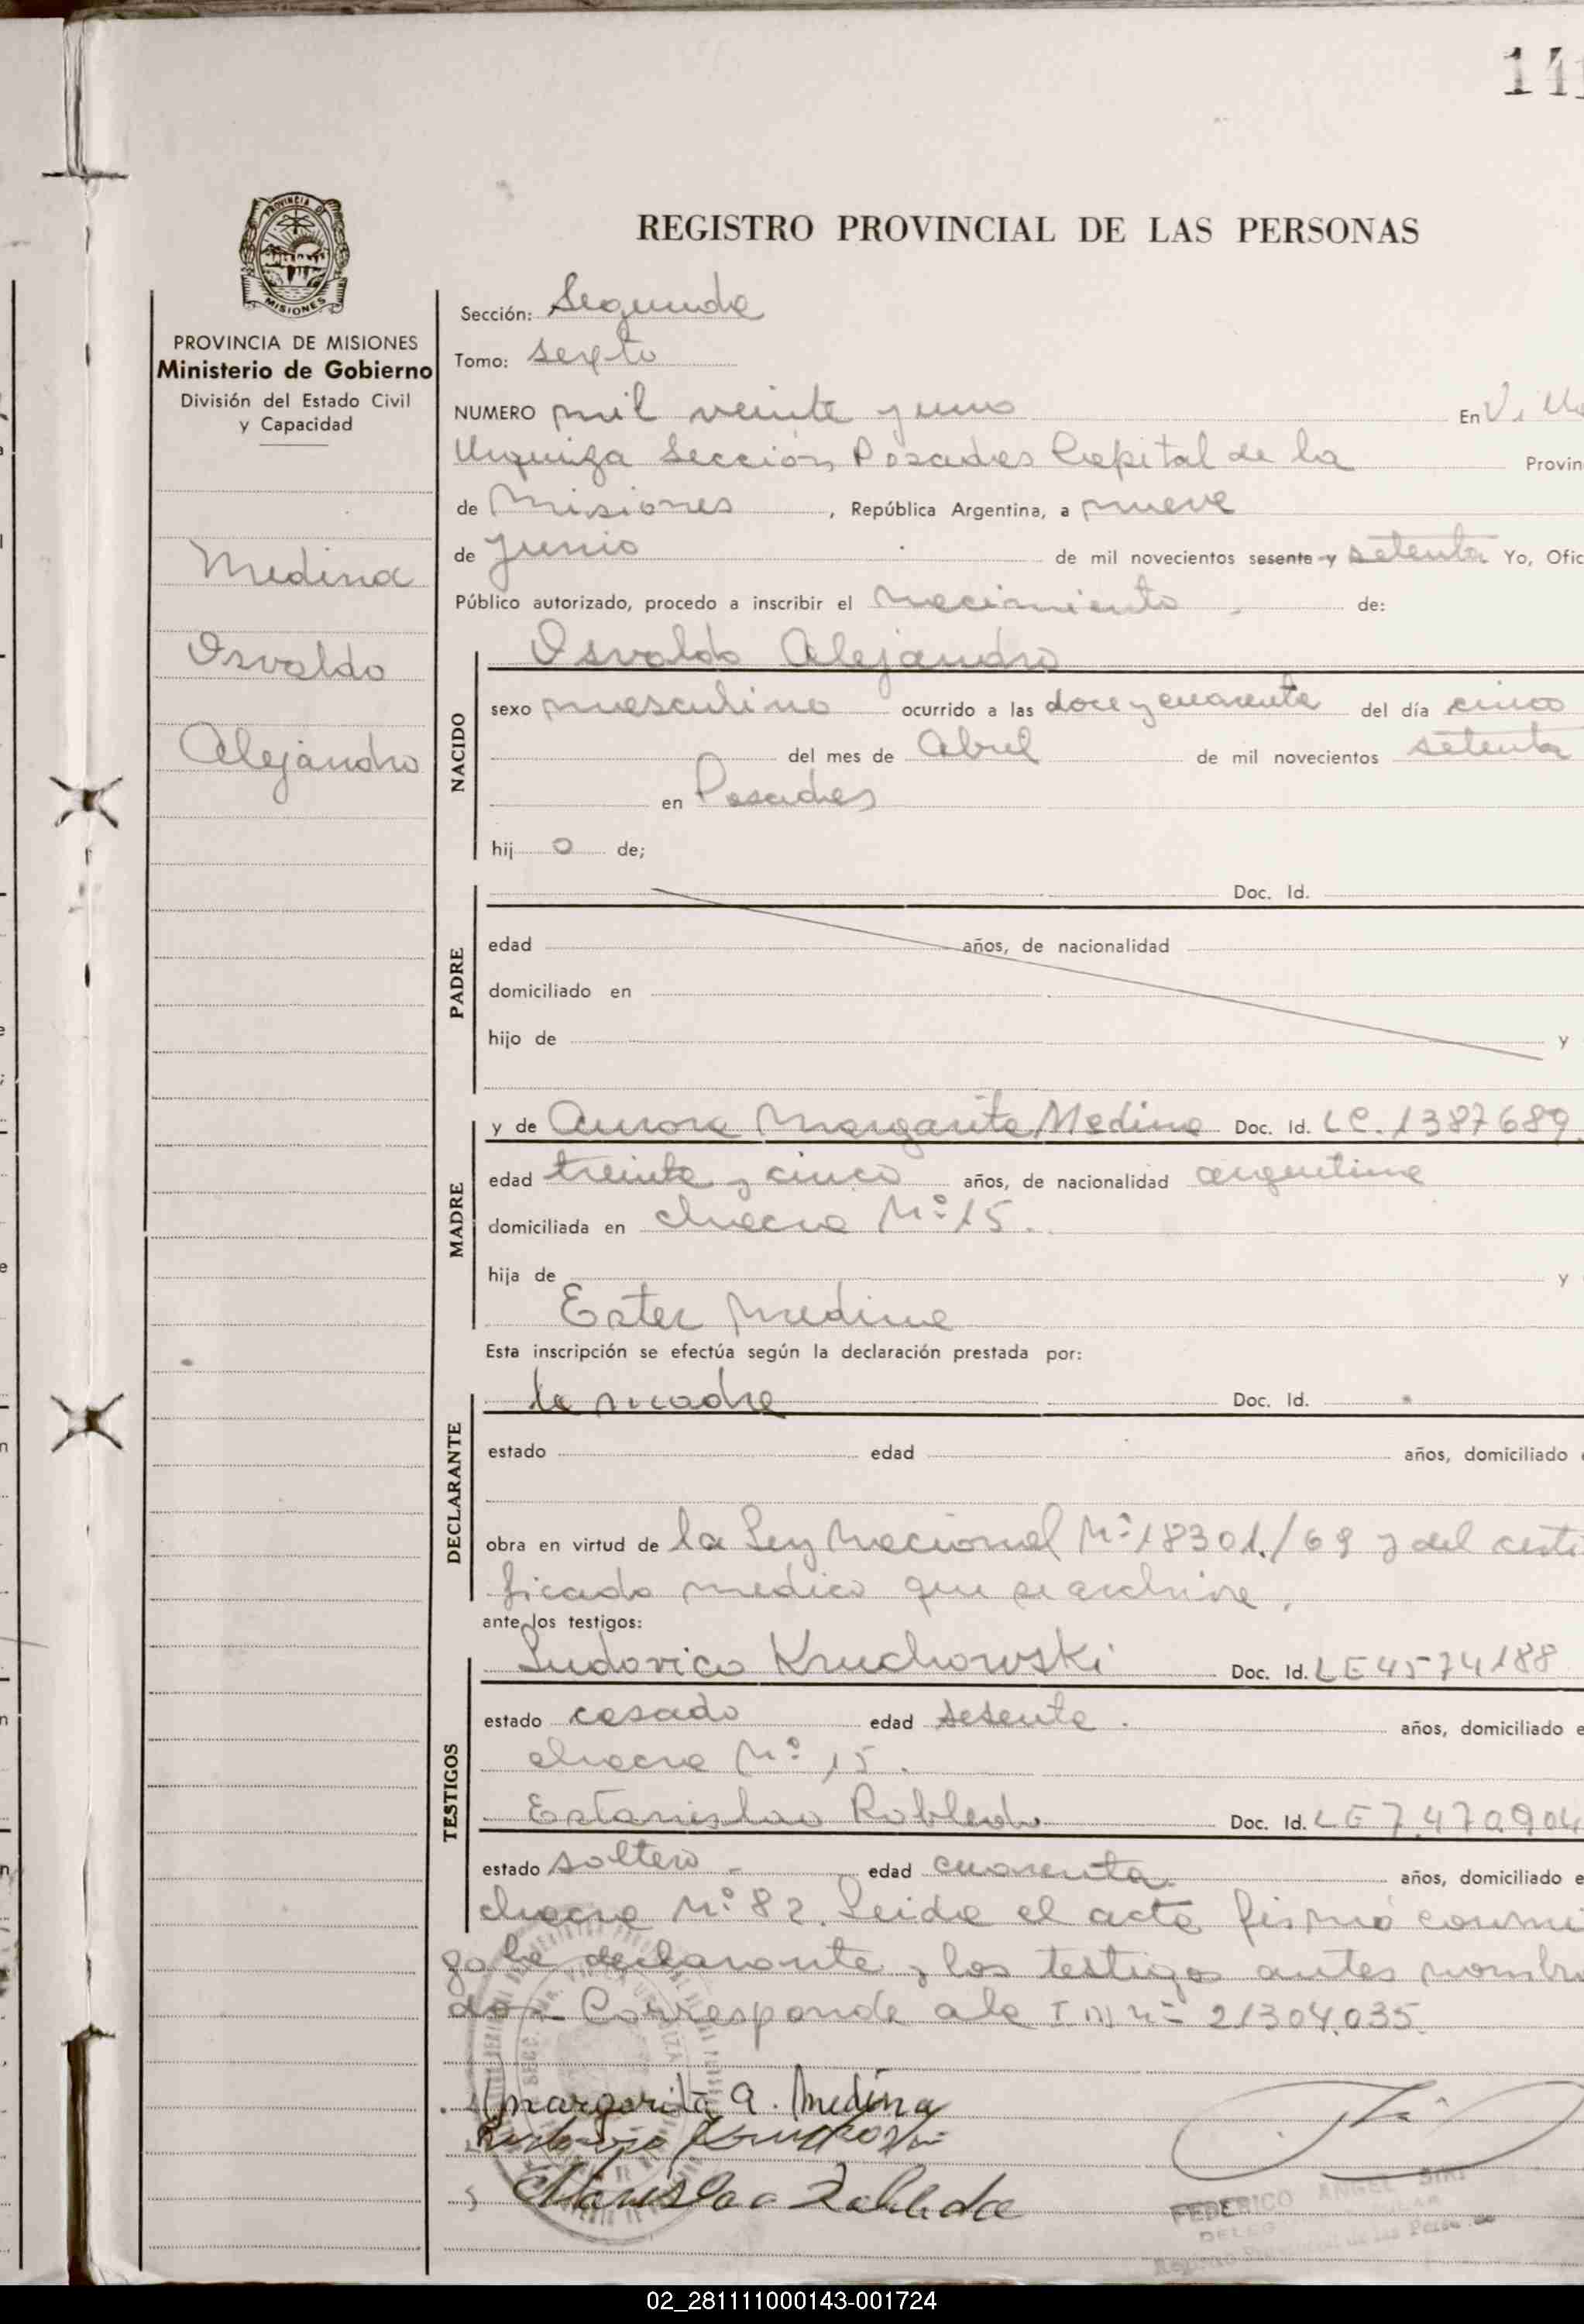 141
PROVINCIA DE
MISIONES
PROVINCIA DE MISIONES
Ministerio de Gobierno
División del Estado Civil
y Capacidad
Medina
Osvaldo
Alejandro
REGISTRO PROVINCIAL DE LAS PERSONAS
Sección: Segunda
Tomo: sexto
NUMERO mil veinte y uno En Villa
Urquiza Sección Posadas Capital de la Provin
de Misiones, República Argentina, a nueve
de Junio de mil novecientos sesenta y setenta Yo, Ofic
Público autorizado, procedo a inscribir el nacimiento de:
NACIDO
Osvaldo Alejandro
sexo masculino ocurrido a las doce y cuarenta del día cinco
del mes de Abril de mil novecientos setenta
en Posadas
hij o de;
PADRE
Doc. Id.
edad años, de nacionalidad
domiciliado en
hijo de y
MADRE
y de Aurora Margarita Medina Doc. Id. LC. 1387689
edad treinta y cinco años, de nacionalidad argentina
domiciliada en chacra Nº 15.
hija de y
Ester Medina
Esta inscripción se efectúa según la declaración prestada por:
DECLARANTE
la madre Doc. Id.
estado edad años, domiciliado
obra en virtud de la Ley Nacional Nº 18301./69 y del certi
ficado medico que se archiva.
ante los testigos:
TESTIGOS
Ludovico Kruchowski Doc. Id. LE 4574188
estado casado edad sesenta. años, domiciliado e
chacra Nº 15.
Estanislao Robledo Doc. Id. LE 7.470.904
estado soltero - edad cuarenta años, domiciliado e
chacra Nº 82. Leida el acta firmó conmi
go la declarante y los testigos antes nombra
do - Corresponde a la I M nº 21304.035.
Margarita A. Medina
Estanislao Robledo
FEDERICO ANGEL
DELEG
Registro Provincial de las Personas
02_281111000143-001724